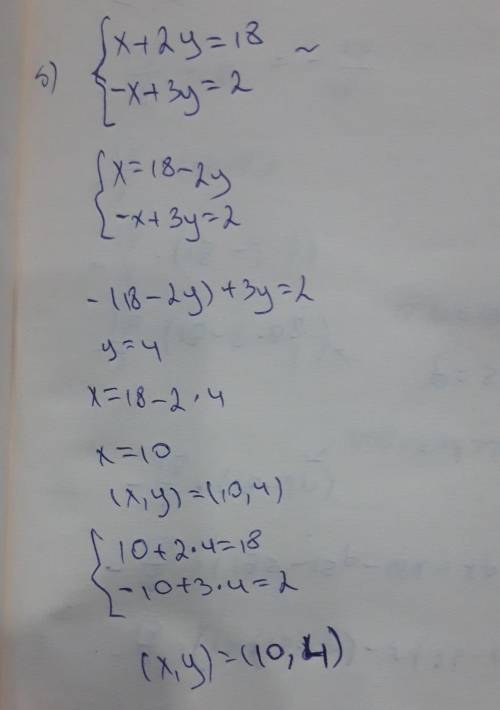 б) { x+2y=18 ~
{ -x+3y=2
{ x=18-2y
{ -x+3y=2
-(18-2y)+3y=2
y=4
x=18-2·4
x=10
(x,y)=(10,4)
{ 10+2·4=18
{ -10+3·4=2
(x,y)=(10,4)